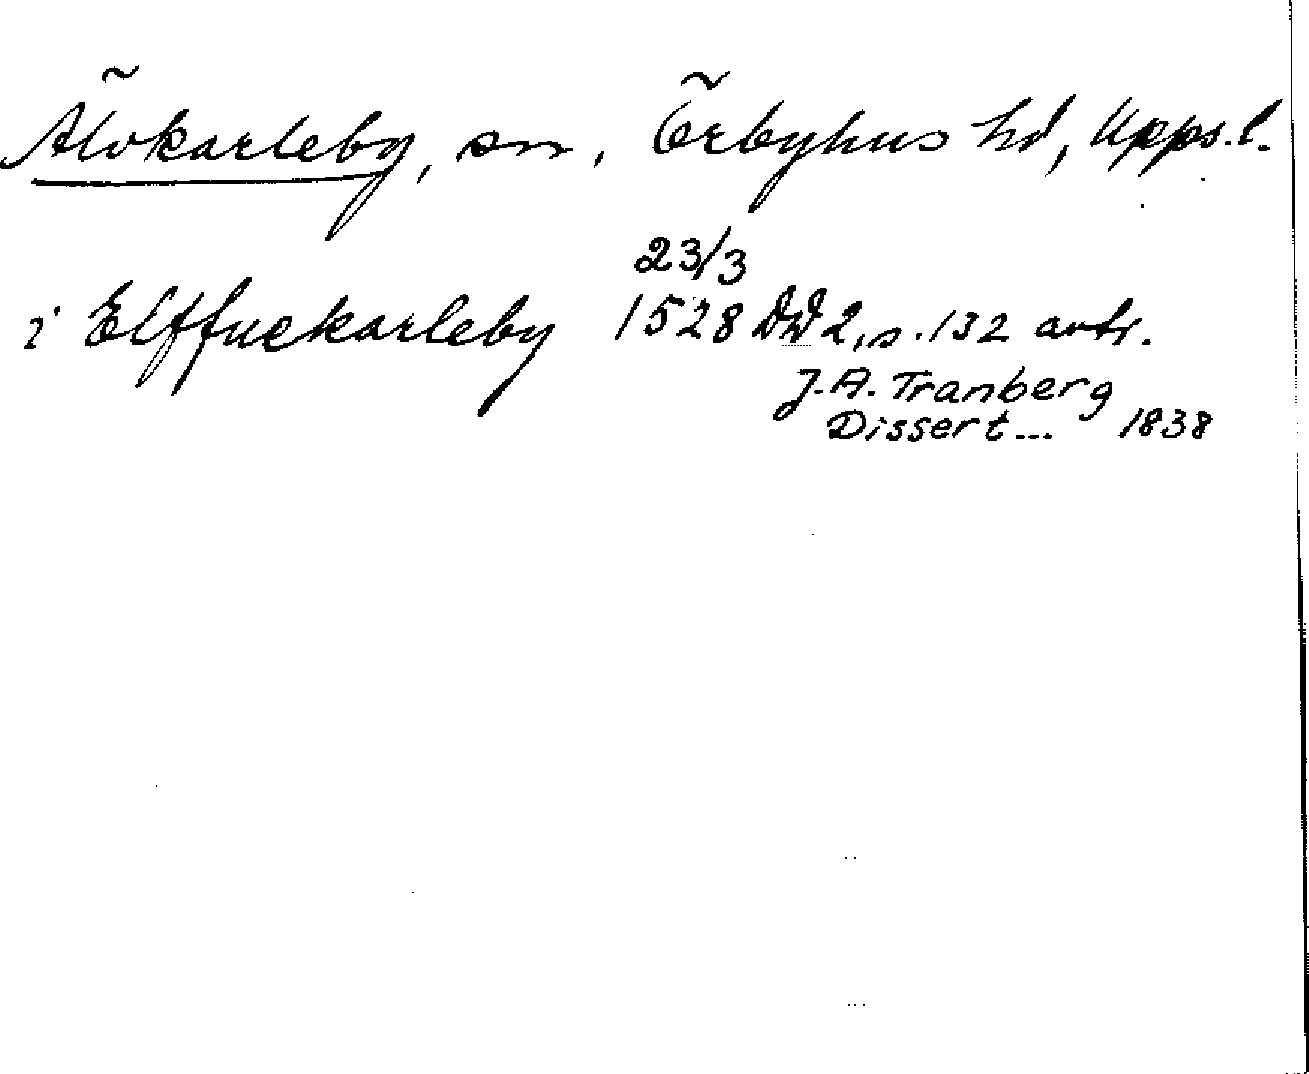 Älvkarleby, sn, Örbyhus hd, Upps.l.
23/3
i Elffuekarleby 1528 DD 2, s. 132 avtr.
J.A. Tranberg
Dissert... 1838